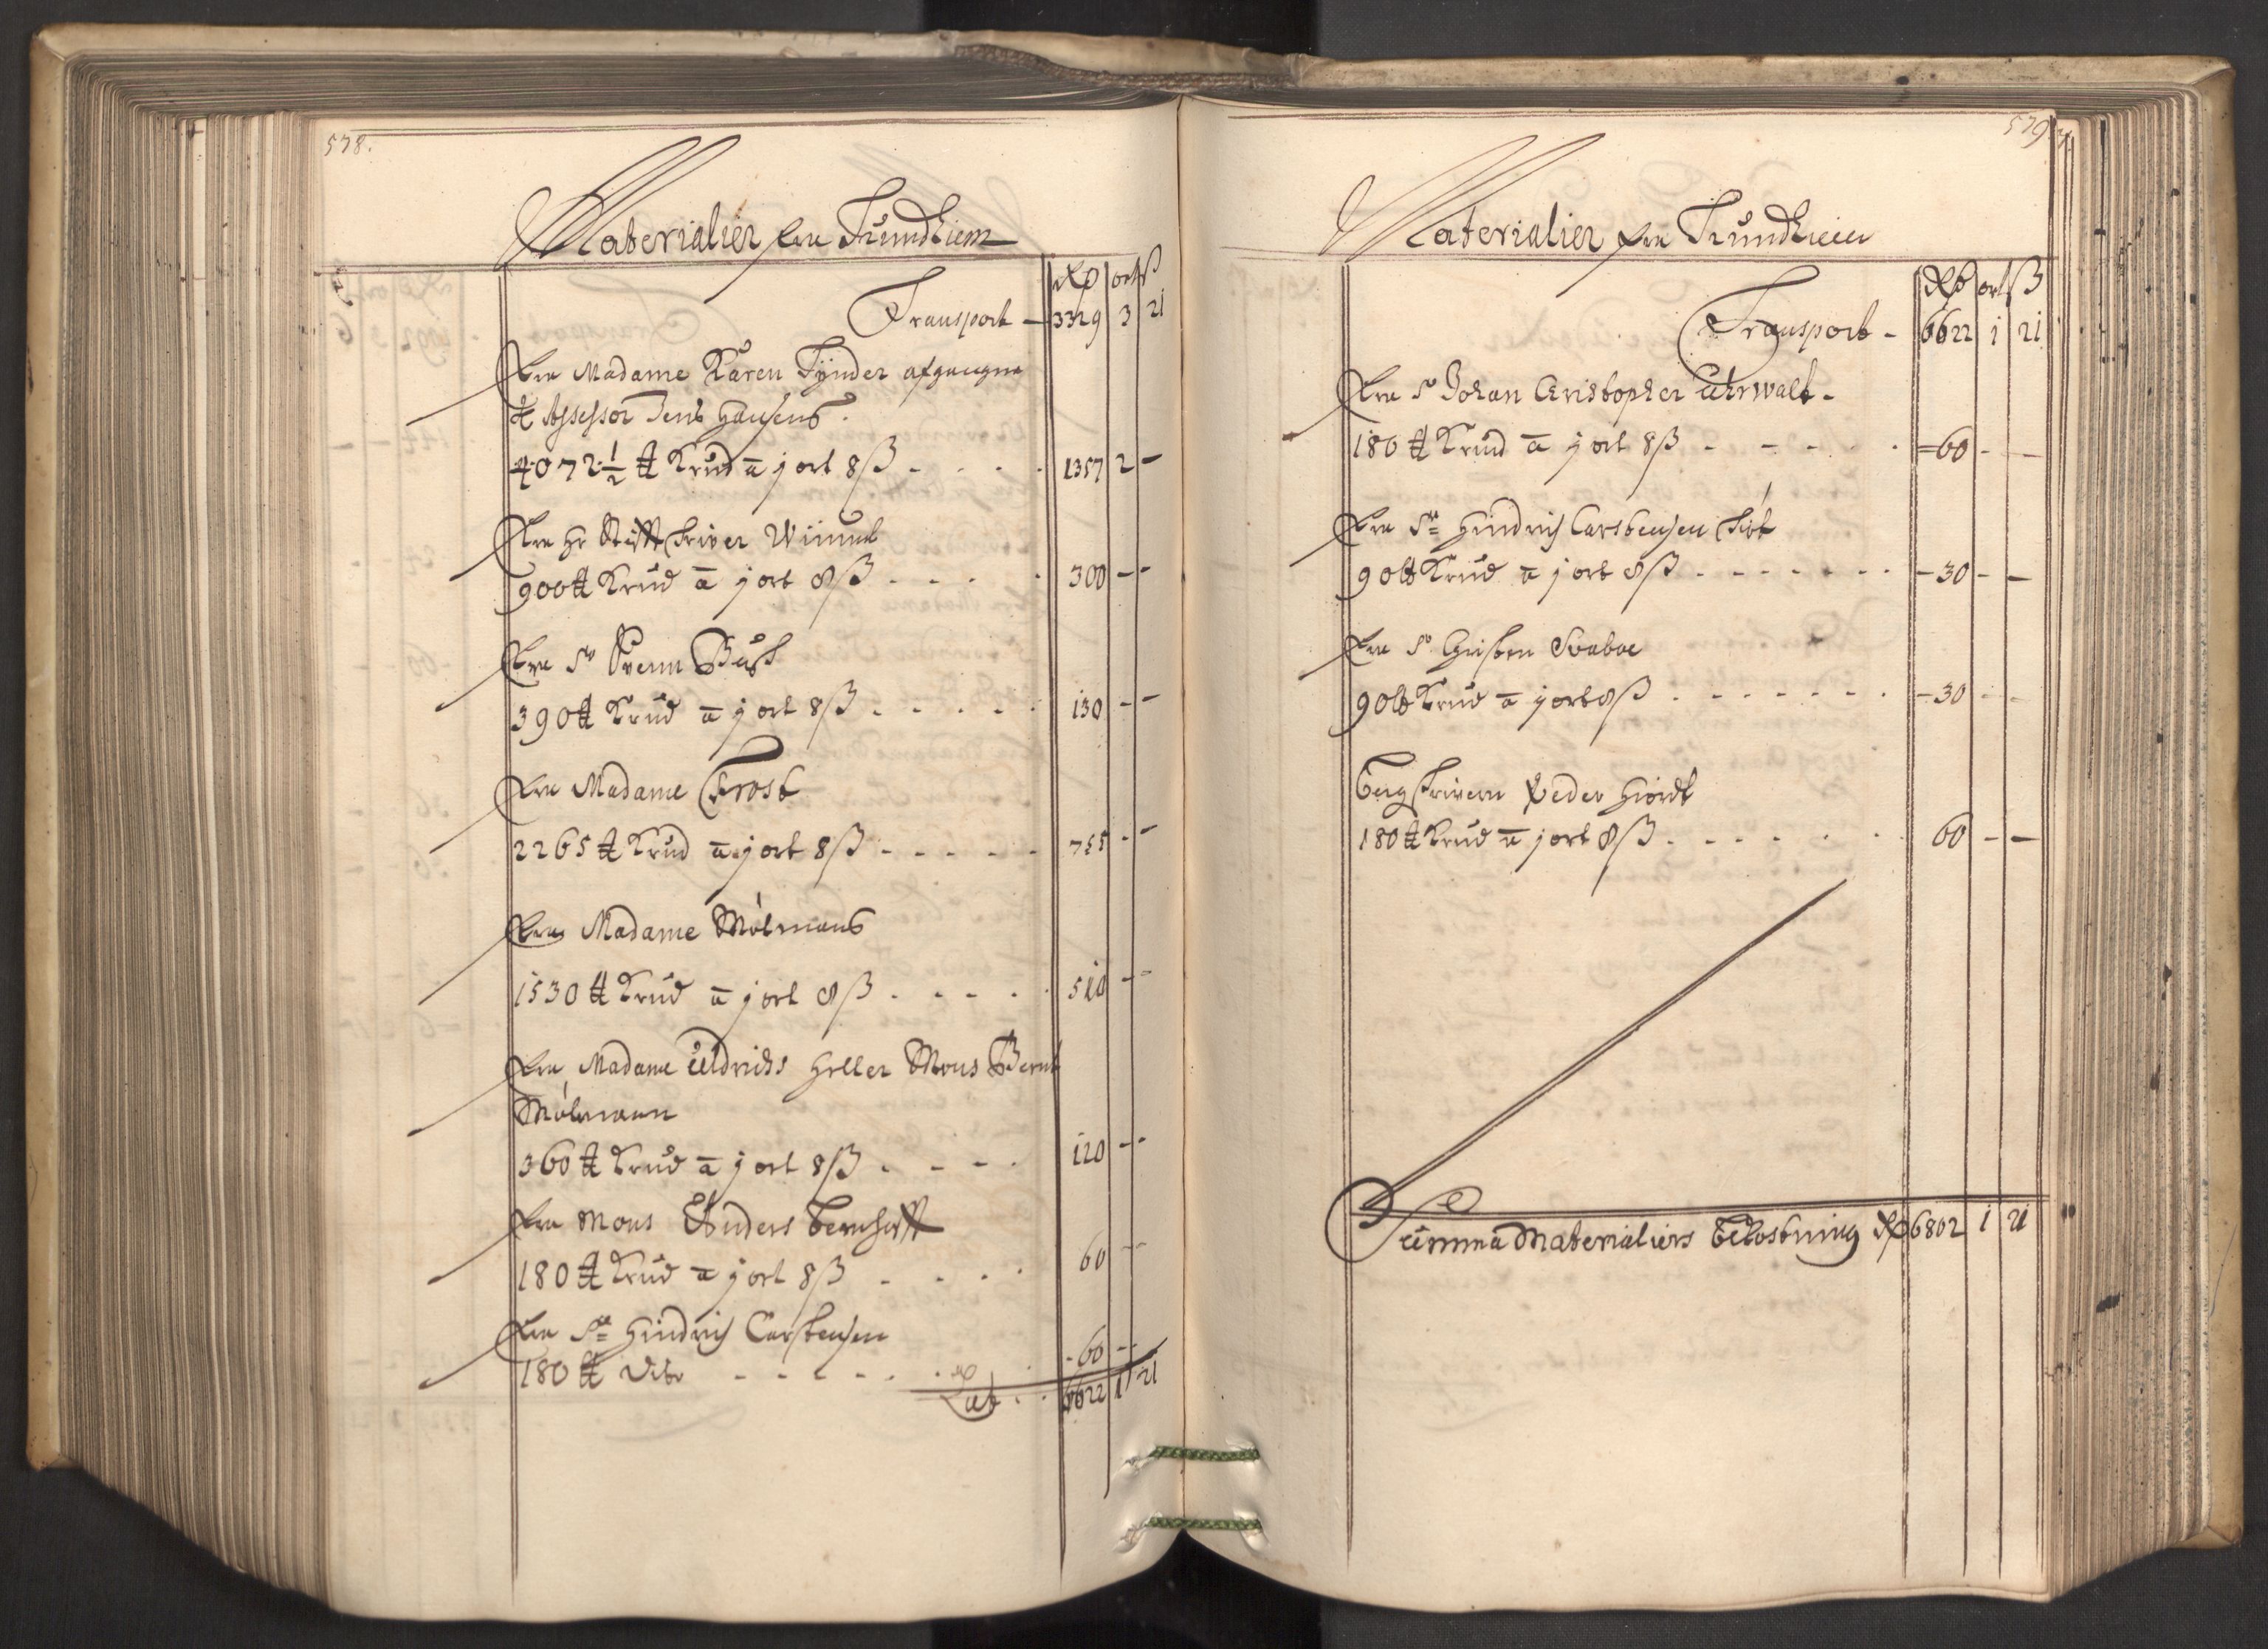 578.
Materialier fra Trundhiem
Rd ort ß
Transport - 3329 3 21
Fra Madame Karen Tÿnder afgangne
Hr Assessor Jens Hansens.
4072½ ℔ Krud a j ort 8 ß - - - - 1357 2 -
Fra Hr Stifft Skriver
900 ℔ Krud a j ort 8 ß - - - - 300 - -
Fra Sr Svenn Busk
390 ℔ Krud a j ort 8 ß - - - - - 130 - -
Fra Madame Frost
2265 ℔ Krud a j ort 8 ß - - - - - 755 - -
Fra Madame Mólmans
1530 ℔ Krud a j ort 8 ß - - - - 510 - -
Fra Madame Uldrichs Heller Mons Bernt
Mólmann
360 ℔ Krud a j ort 8 ß - - - - 120 - -
Fra Mons Anders
180 ℔ Krud a j ort 8 ß - - - - 60 - -
Fra Sr Hindrich Carstensen
180 ℔ Dito - - - - - - 60 - -
Lat - - 6622 1 21
579
Materialier fra Trundhiem
Rd ort ß
Transport - 6622 1 21
Fra Sr Johan Christopher Uhrwalt -
180 ℔ Krud a j ort 8 ß - - - - - 60 - -
Fra Sr Hindrich Carstensen
90 ℔ Krud a j ort 8 ß - - - - - - - 30 - -
Fra Sr Christen Svaboe
90 ℔ Krud a j ort 8 ß - - - - - - - 30 - -
Bergskrivern Peder Hiordt
180 ℔ Krud a j ort 8 ß - - - - - - 60 - -
Summa Materialiers Bekostning Rd 6802 1 21